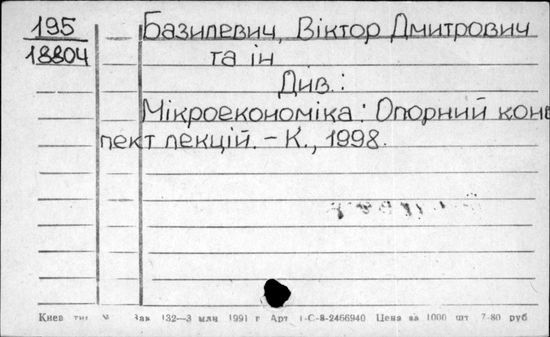 195
18804
Базилевич, Віктор Дмитрович
та ін
Див.:
Мікроекономіка: Опорний конс
пект лекцій. – К., 1998.
Киев Зак 132—3 млн 1991 г Арт 1-С-8-2466940 Цена за 1000 шт 7-80 руб